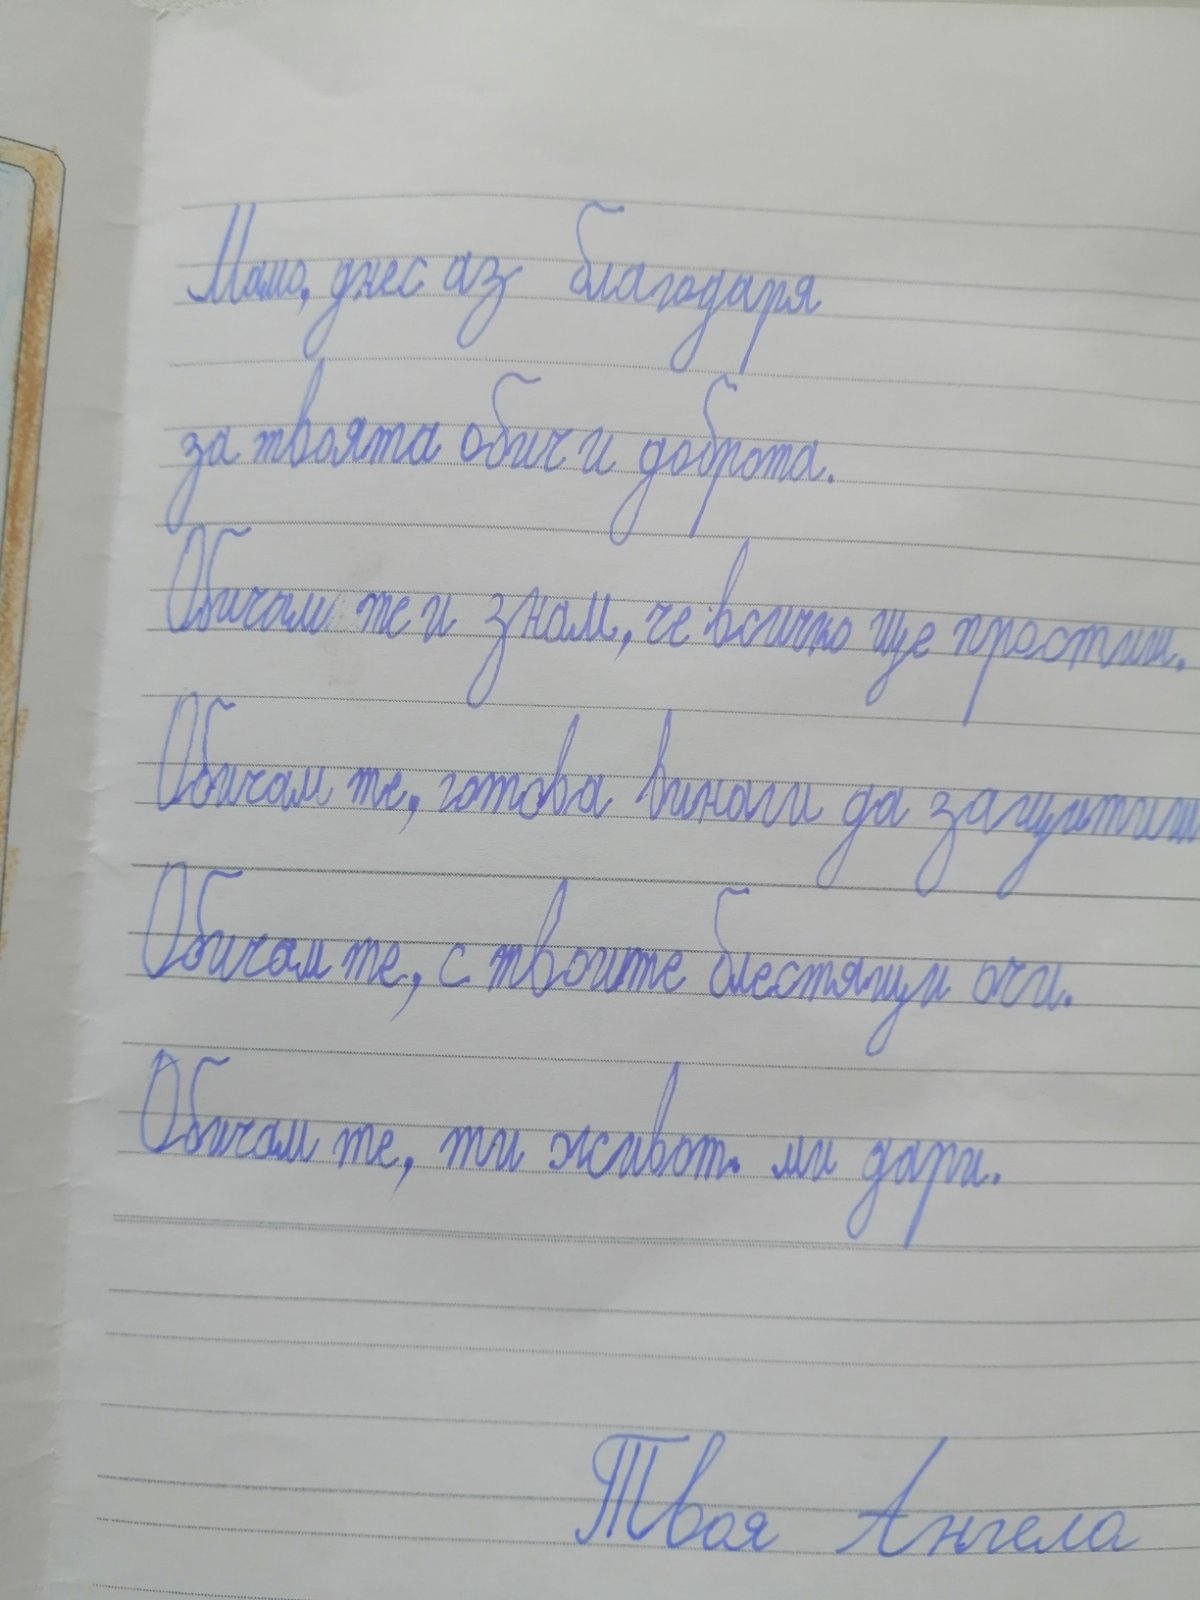 Мамо, днес аз благодаря
за твоята обич и доброта.
Обичам те и знам, че всичко ще простиш.
Обичам те, готова винаги да защитиш
Обичам те, с твоите блестящи очи.
Обичам те, ти живот. ми дари.
Твоя Ангела